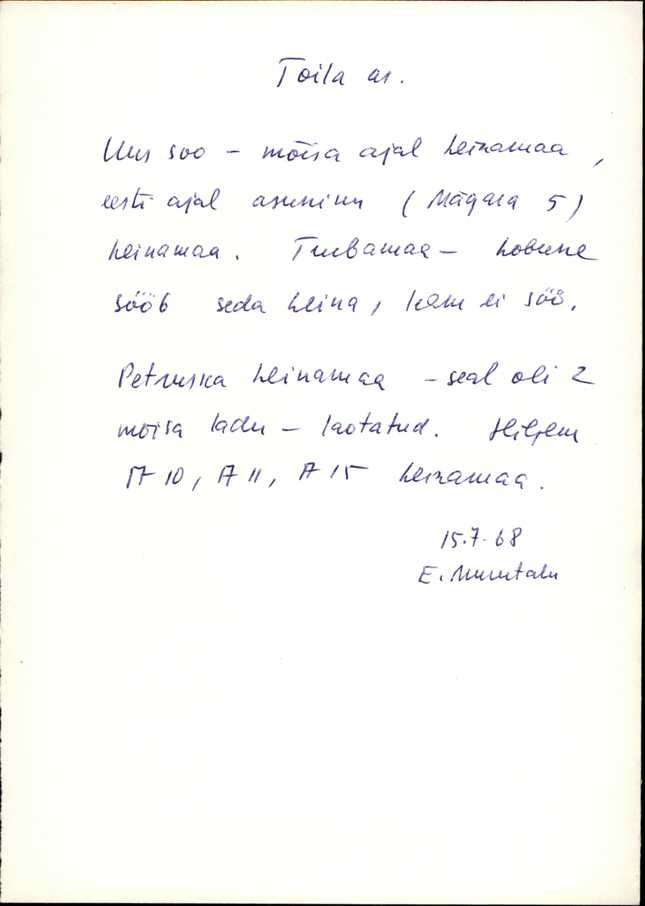 Toila as.
Uus soo – mõisa ajal heinamaa,
eesti ajal asuniku (Mägara 5)
heinamaa. Turbamaa – hobune
sööb seda heina, lehm ei söö.
Petruska heinamaa – seal oli 2
mõisa ladu – laotatud. Hiljem
A 10, A 11, A 15 heinamaa.
15.7.68
E. Murutalu